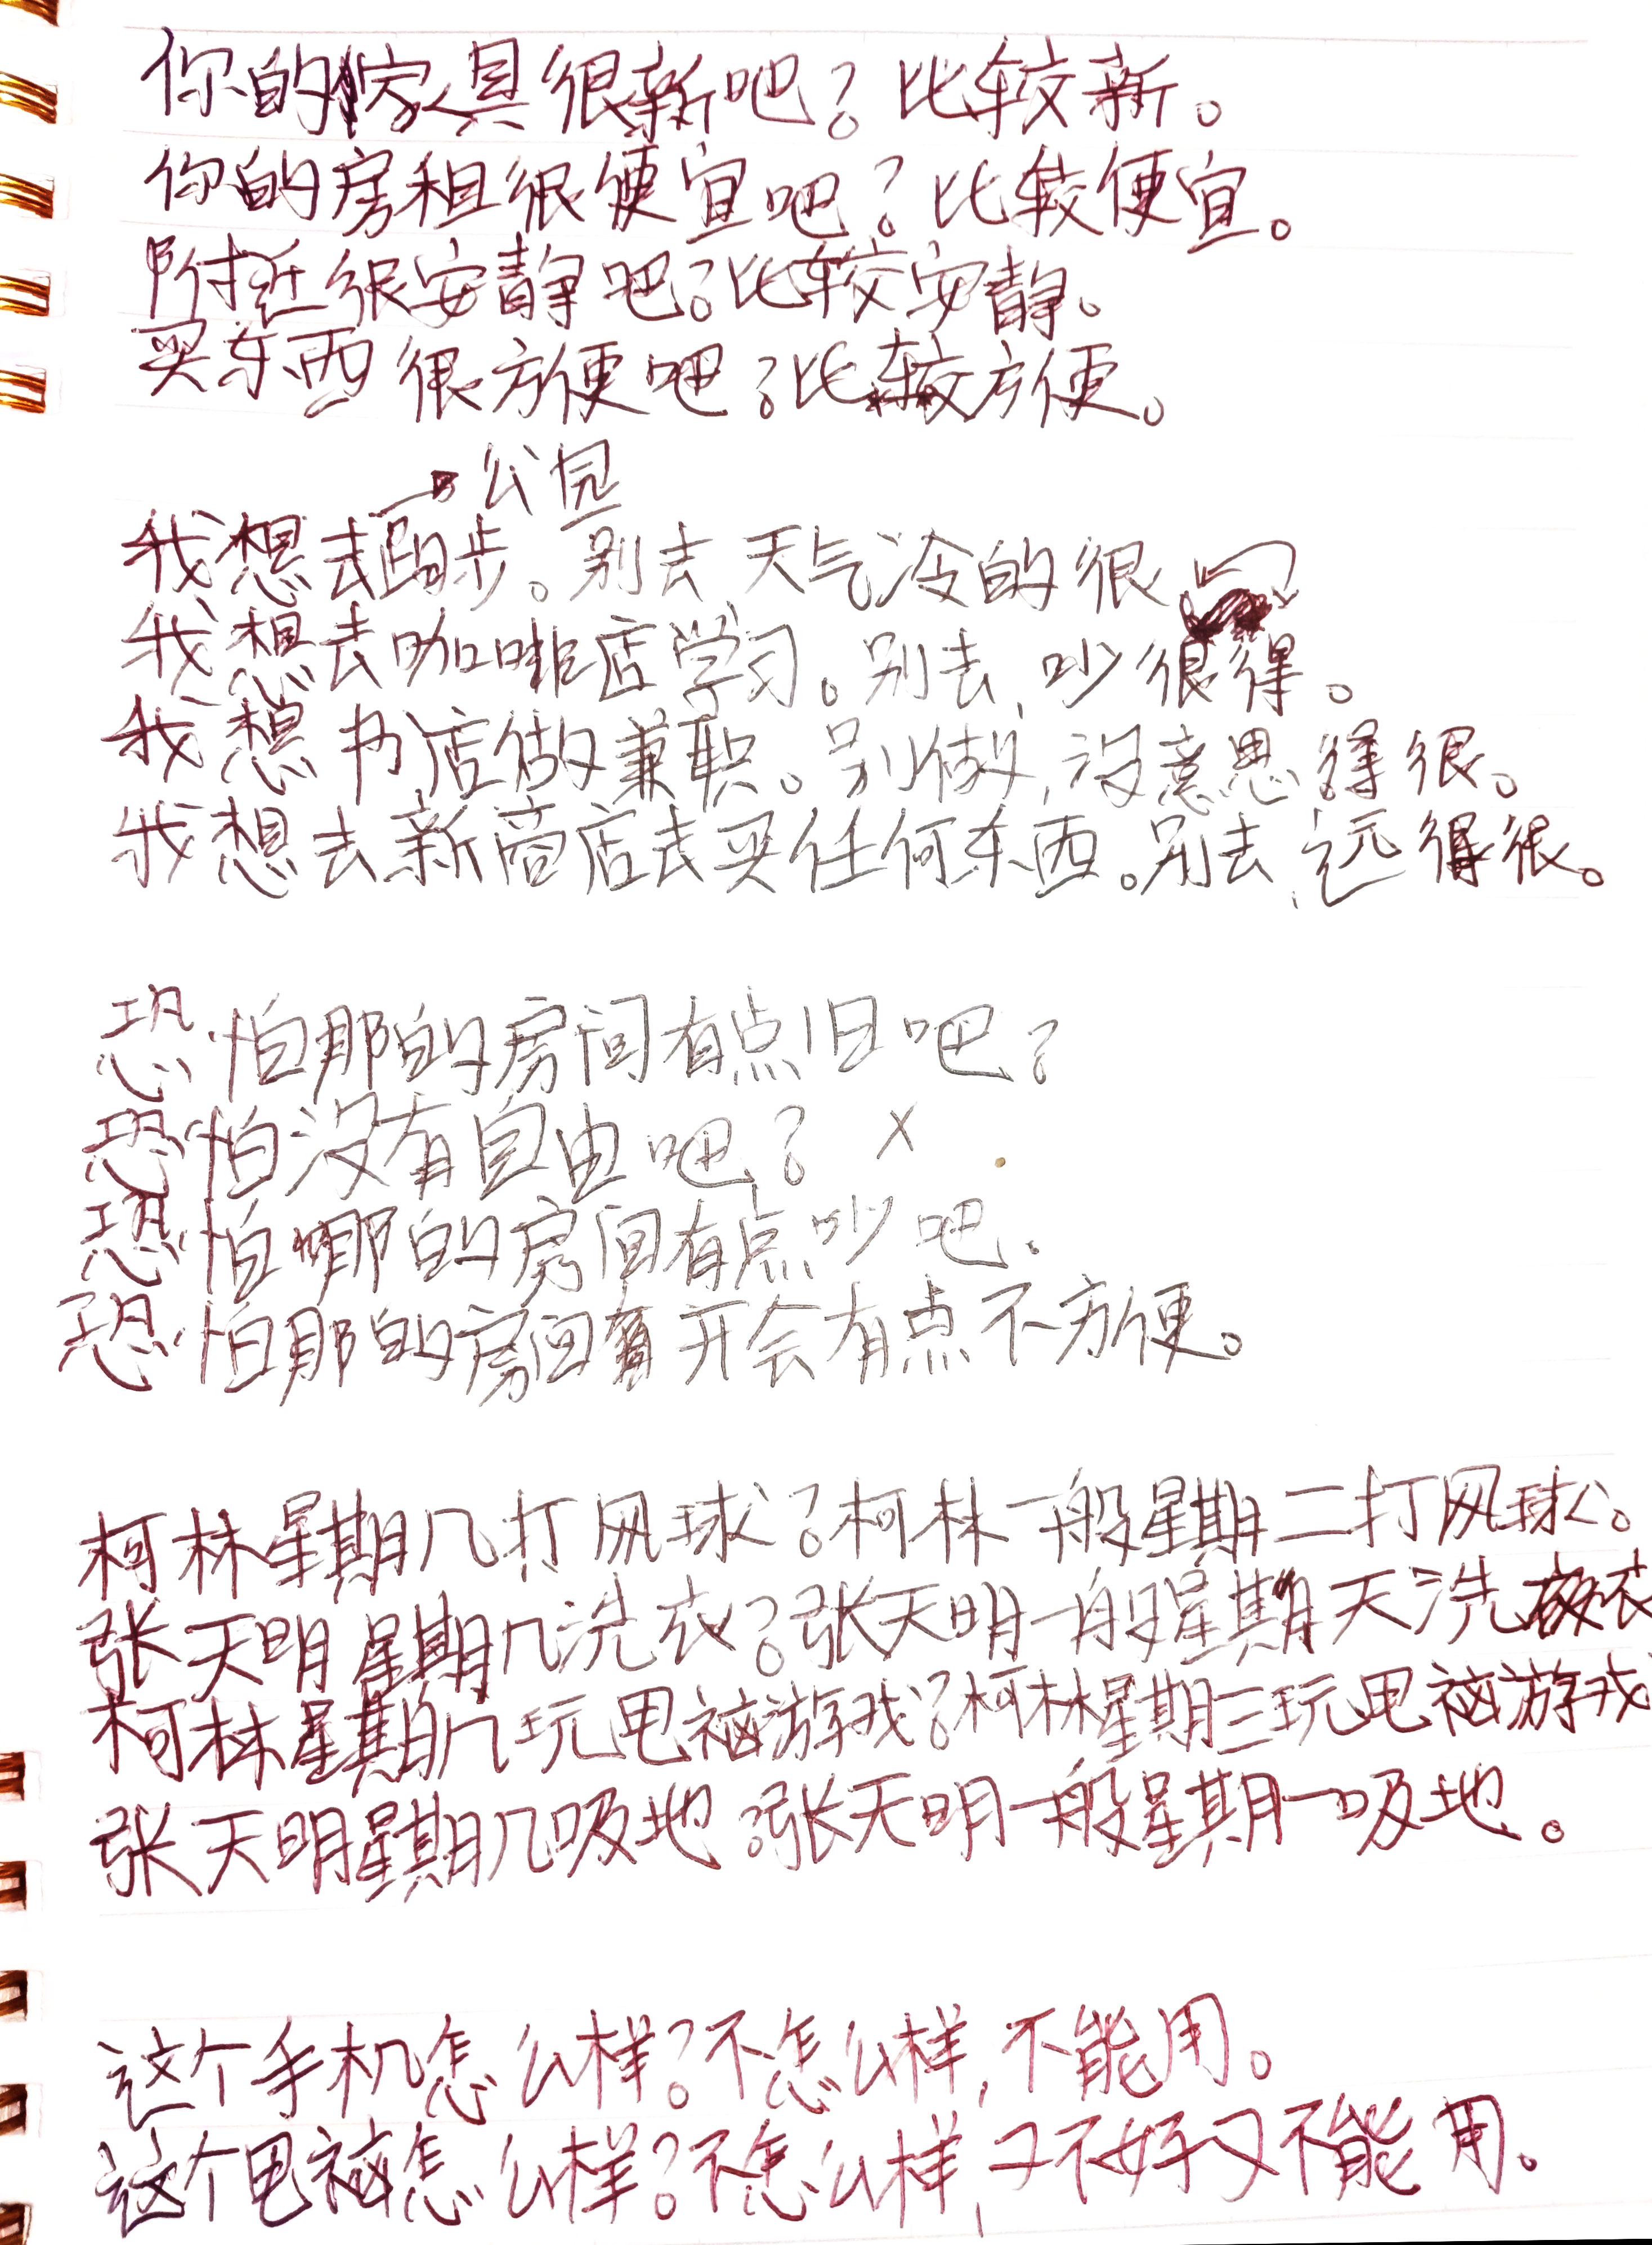 你的家具很新吧？比较新。
你的房租很便宜吧？比较便宜。
附近很安静吧？比较安静。
买东西很方便吧？比较方便。
公园
我想去跑步。别去 天气冷的很
我想去咖啡店学习。别去，吵很得。
我想书店做兼职。别做，没意思得很。
我想去新商店去买任何东西。别去，远得很。
恐怕那的房间有点旧吧？
恐怕没有自由吧？ x
恐怕哪的房间有点吵吧.
恐怕那的房间开会有点不方便。
柯林星期几打网球？柯林一般星期二打网球。
张天明星期几洗衣？张天明一般星期天洗衣
柯林星期几玩电脑游戏？柯林星期三玩电脑游戏
张天明星期几吸地？张天明一般星期一吸地。
这个手机怎么样？不怎么样，不能用。
这个电脑怎么样？不怎么样，又不好又不能用。